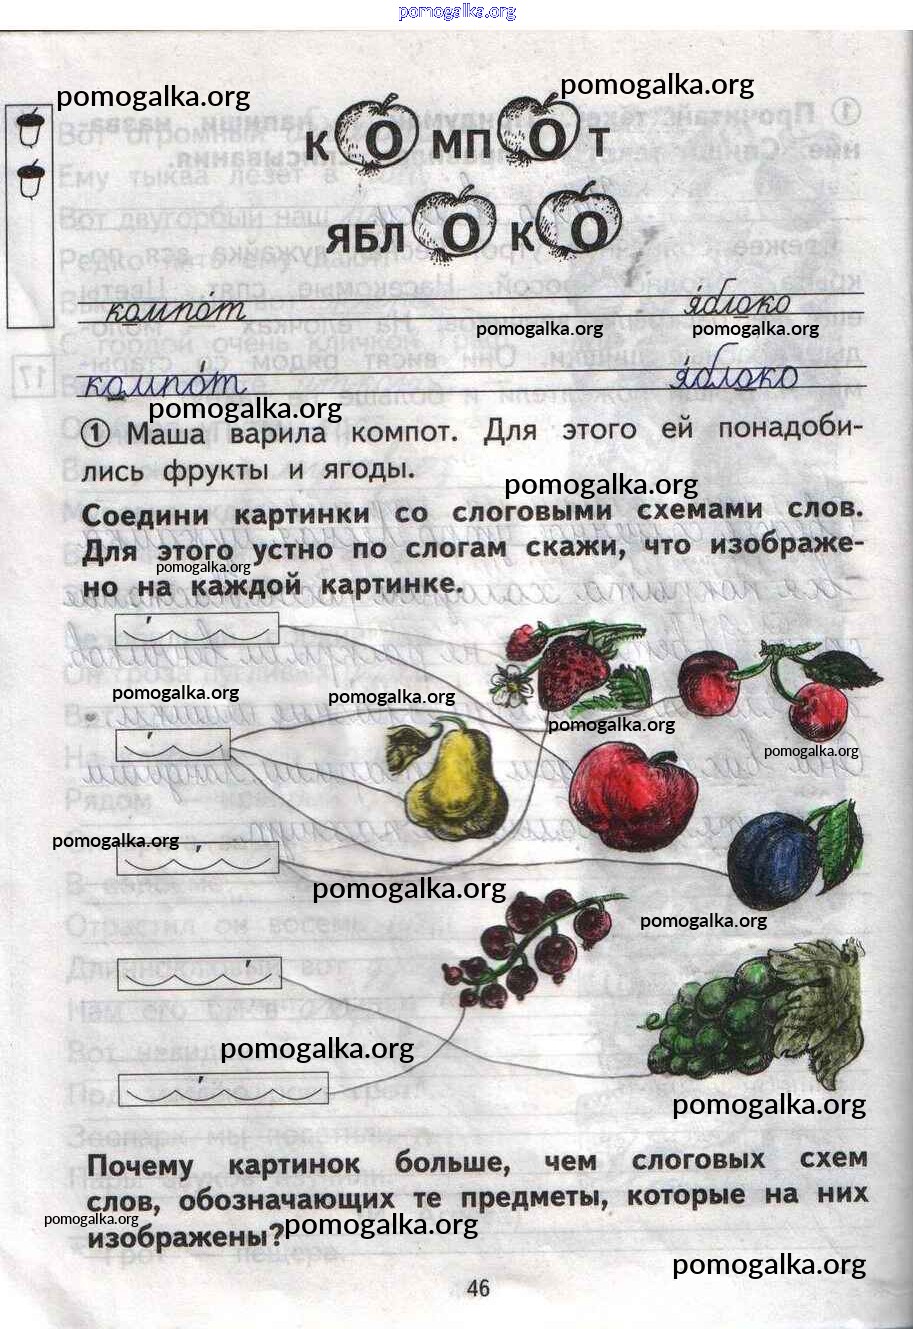 pomogalka.org
pomogalka.org
pomogalka.org
КОМПОТ
ЯБЛОКО
компо́т я́блоко
pomogalka.org pomogalka.org
компо́т я́блоко
pomogalka.org
1 Маша варила компот. Для этого ей понадоби-
лись фрукты и ягоды.
pomogalka.org
Соедини картинки со слоговыми схемами слов.
Для этого устно по слогам скажи, что изображе-
pomogalka.org
но на каждой картинке.
pomogalka.org
pomogalka.org
pomogalka.org
pomogalka.org
pomogalka.org
pomogalka.org
pomogalka.org
pomogalka.org
pomogalka.org
Почему картинок больше, чем слоговых схем
слов, обозначающих те предметы, которые на них
pomogalka.org
изображены?
pomogalka.org
pomogalka.org
46